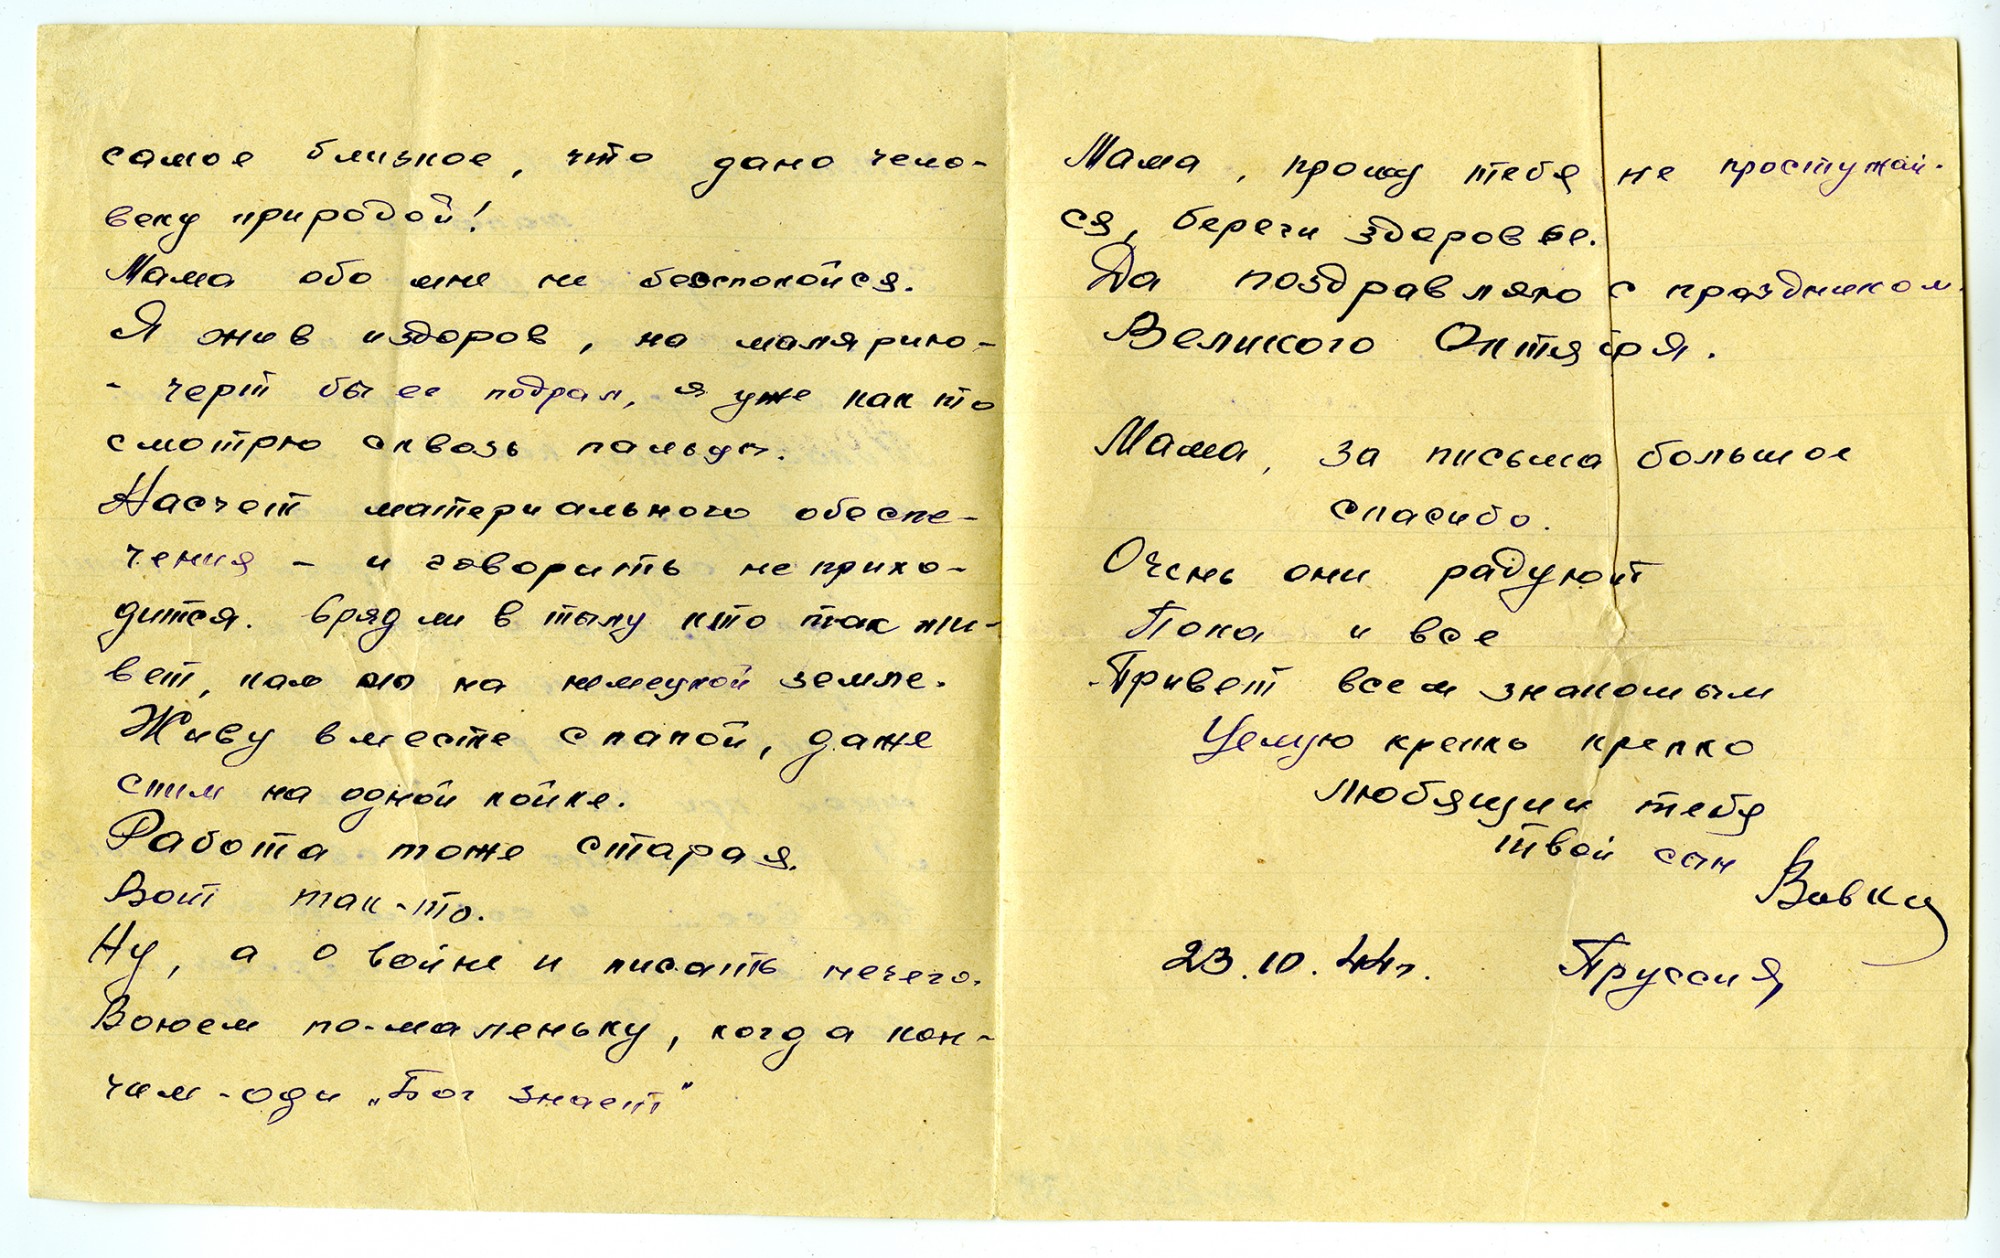 самое близкое, что дано чело-
веку природой!
Мама обо мне не беспокойся.
Я жив и здоров, на малярию-
- черт бы ее подрал, я уже как то
смотрю сквозь пальцы.
Насчет материального обеспе-
чения - и говорить не прихо-
дится. Вряд ли в тылу кто так жи-
вет, как мы на немецкой земле.
Живу вместе с папой, даже
спим на одной койке.
Работа тоже старая.
Вот так-то.
Ну, а о войне и писать нечего.
Воюем по-маленьку, когда кон-
чим - один „Бог знает"
Мама, прошу тебя не простужай-
ся, береги здоровье.
Да поздравляю с праздником
Великого Октября.
Мама, за письма большое
спасибо.
Очень они радуют
Пока и все
Привет всем знакомым
Целую крепко крепко
Любящий тебя
твой сын
Вовка
23.10.44г. Пруссия